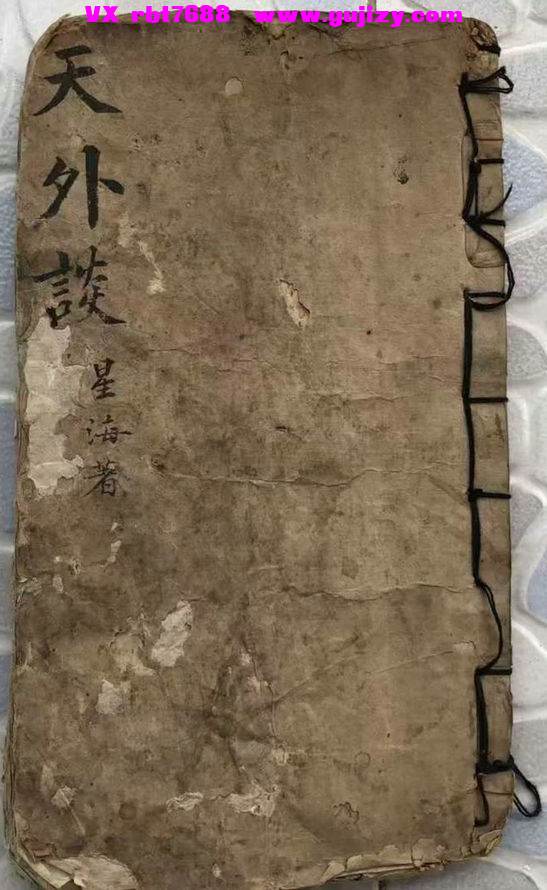 VX rbt7688 www.gujizy.com
天外談
星海著